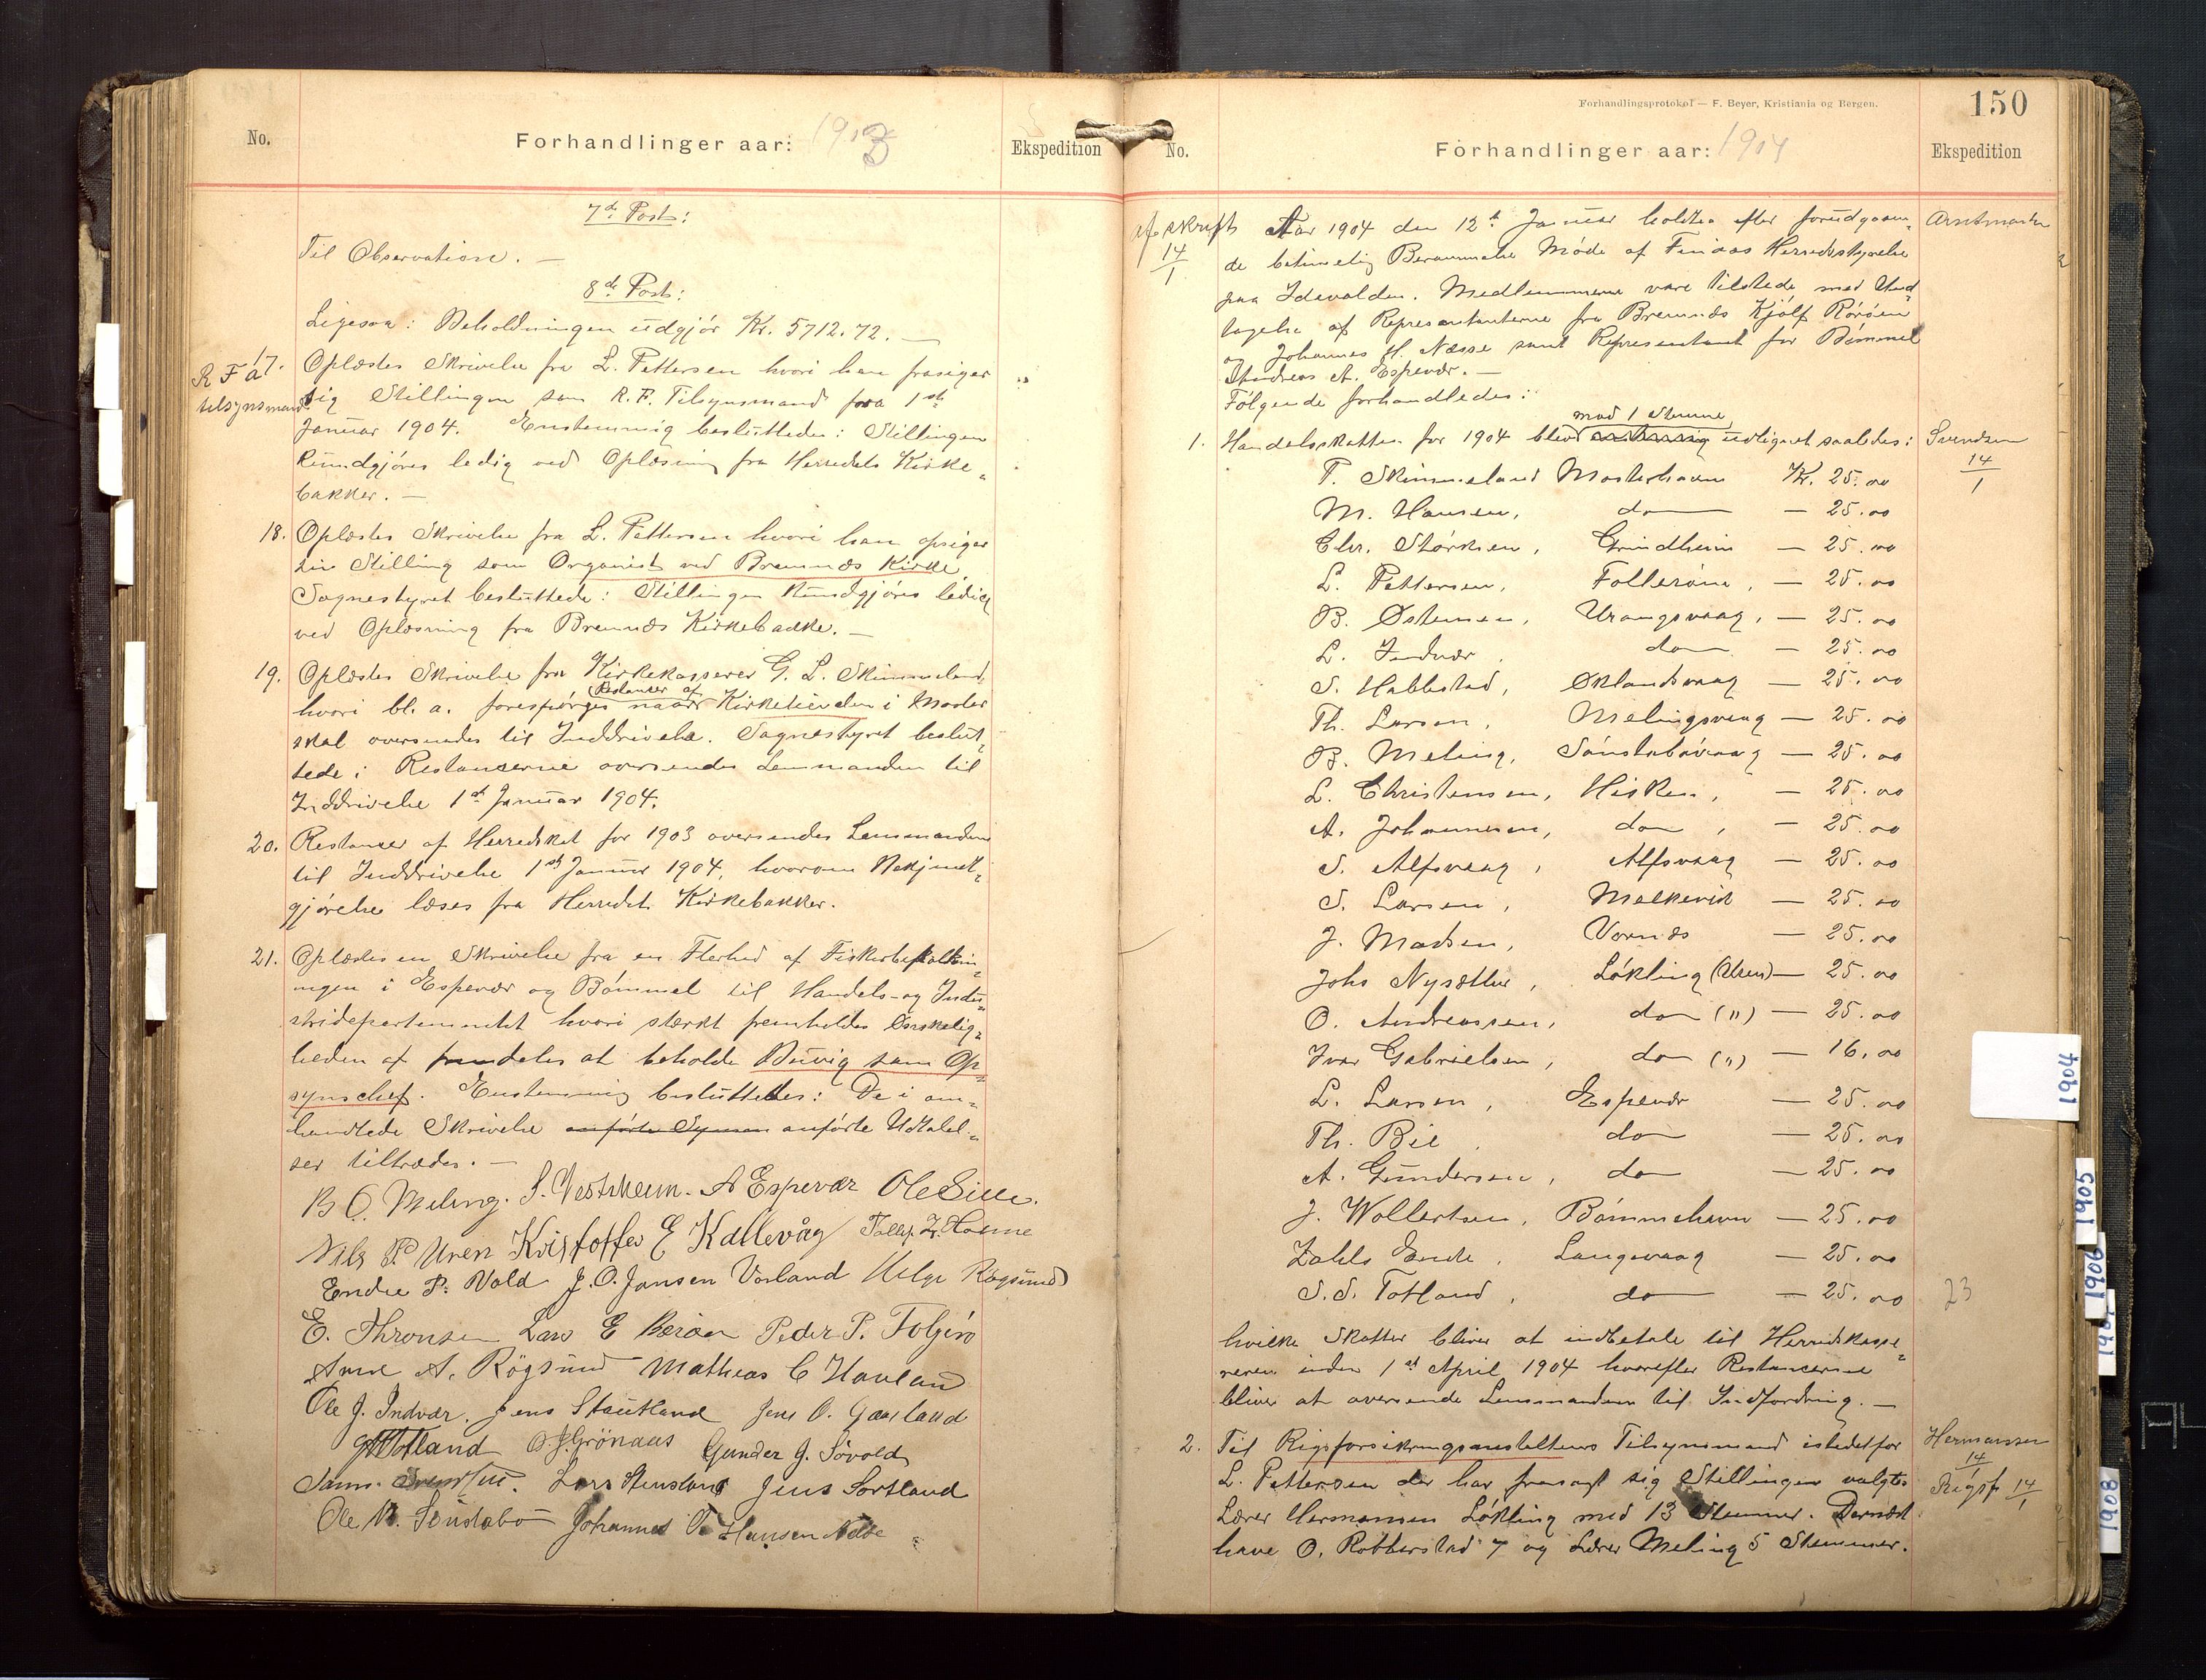 No.
Forhandlinger aar: 1903
Ekspedition
7de Post:
Til Observation. —
8de Post:
Ligesaa: Beholdningen udgjør Kr. 5712.72. —
R F A
tilsynsmand
17. Oplæstes Skrivelse fra L. Pettersen hvori han frasiger
sig Stillingen som R. F. Tilsynsmand fra 1ste
Januar 1904. Enstemmig besluttedes: Stillingen
kundgjøres ledig ved Oplæsning fra Herredets Kirke-
bakker. —
18. Oplæstes Skrivelse fra L. Pettersen hvori han opsiger
sin Stilling som Organist ved Bremnæs Kirke
Sognestyret besluttede: Stillingen kundgjøres ledig
ved Oplæsning fra Bremnæs Kirkebakke. —
19. Oplæstes Skrivelse fra Kirkekasserer G. L. Skimmeland,
hvori bl. a. forespørges naar Restancer af Kirketienden i Moster
skal oversendes til Inddrivelse. Sognestyret beslut-
tede: Restancerne oversendes Lensmanden til
Inddrivelse 1st Januar 1904.
20. Restancer af Herredskat for 1903 oversendes Lensmanden
til Inddrivelse 1st Januar 1904, hvorom Bekjendt-
gjørelse læses fra Herredets Kirkebakker.
21. Oplæstes en Skrivelse fra en Flerhed af Fiskerbefolkn-
ingen i Espevær og Bømmel til Handels- og Indu-
stridepartementet hvori stærkt fremholdes Ønskelig-
heden af fremdeles at beholde Buvig som Op-
synschef. Enstemmig besluttedes: De i om-
handlede Skrivelse anførte Udtalel-
ser tiltrædes. —
B O. Meling. S. Vestrheim. A Espevær Ole Sille.
Nils P. Uren Kristoffer E Kallevåg Tollef Z. Holme
Endre P. Vold J. O. Jansen Vorland Helge Røgsund
E. Thronsen Lars E Børøen Peder P. Folgerø
Arne A. Røgsund Mathias C Haveland
Ole J. Indvær. Jens Stautland Jens O. Gaasland
Totland O. J. Grönaas Gunder G. Søvold
Sams. Lars Stensland Jens Sortland
Ole N. Søndabø Johannes T. Hansen Nesse
Forhandlingsprotokol — F. Beyer, Kristiania og Bergen.
150
No.
Forhandlinger aar: 1904
Ekspedition
afskrift
14/1
Aar 1904 den 12te Januar holdtes efter forudgaaen-
de betimelig Berammelse Møde af Finaas Herredsstyrelse
paa Idevolden. Medlemmerne vare tilstede med Und-
tagelse af Representanterne fra Bremnæs Kjólf Rórøen
og Johannes H. Næsse samt Representant for Bømmel
Andreas A. Espevær. —
Følgende forhandledes:
Amtmanden
mod 1 Stemme
1. Handelsskatten for 1904 blev enstemmig udlignet saaledes:
Svendsen
14/1
T. Skimmeland Mosterhavn Kr. 25.00
M. Hansen, do — 25.00
Chr. Størksen, Grindheim — 25.00
L. Pettersen, Folkerøen, — 25.00
B. Østensen, Urangsvaag, — 25.00
L. Indvær, do — 25.00
S. Habbestad, Øklandsvaag — 25.00
Th. Larsen, Melingsvaag — 25.00
B. Meling, Sønstabøvaag — 25.00
L. Christensen, Hisken, — 25.00
A. Johannesen, do, — 25.00
S. Alfsvaag, Alfsvaag — 25.00
S. Larsen, Mælkevik — 25.00
J. Madsen, Vornæs — 25.00
Johs Nysæther, Løkling (Uren) — 25.00
O. Andreassen, do (") — 25.00
Ivar Gabrielsen, do (") — 16.00
L. Larsen, Espevær — 25.00
Th. Bie do — 25.00
A. Gundersen, do — 25.00
J. Wollertsen, Bømmelhavn — 25.00
Zahls Enke, Langevaag — 25.00
S. S. Totland, do — 25.00
23
hvilke Skatter bliver at indbetale til Herredskasse-
reren inden 1st April 1904 hvorefter Restancerne
bliver at oversende Lensmanden til Indfordring. —
2. Til Rigsforsikringsanstaltens Tilsynsmand istedetfor
L. Pettersen der har frasagt sig Stillingen valgtes
Lærer Hermansen Løkling med 13 Stemmer. Dernæst
have O. Robberstad 7 og Lærer Meling 5 Stemmer.
Hermansen
14
Rigsf. 14/1
1904
1905
1906
1908